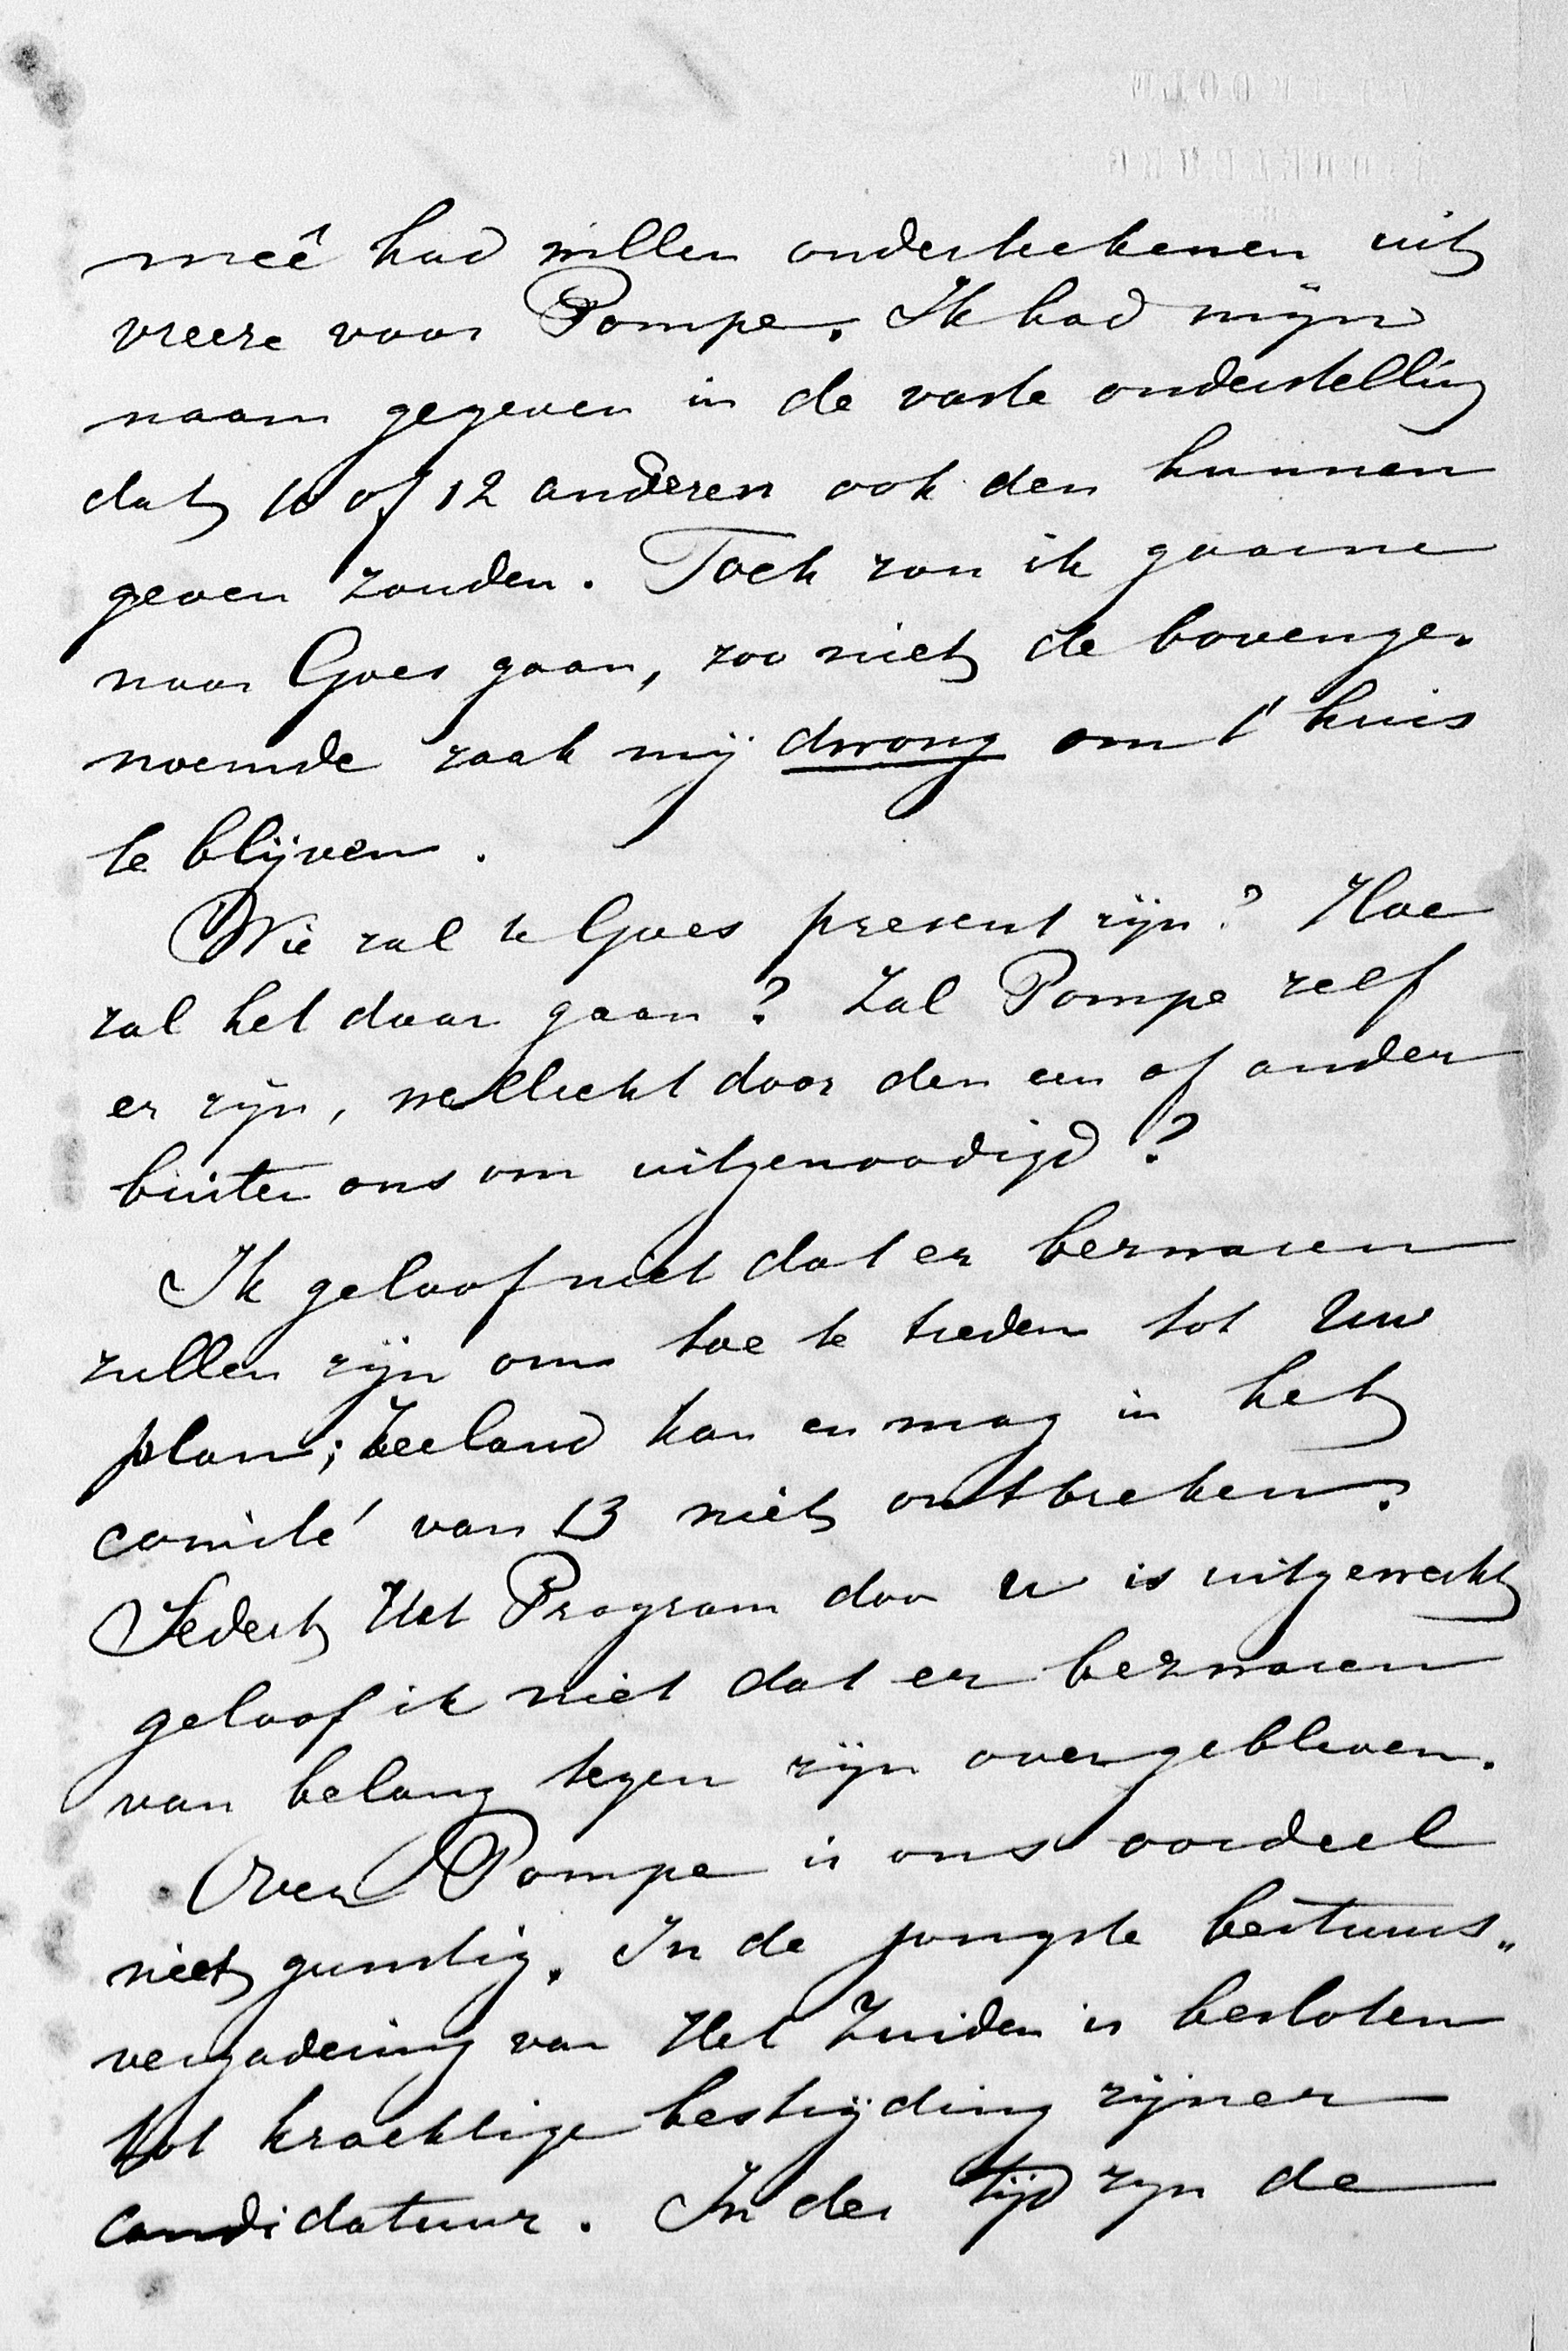 meê had willen onderteekenen uit
vreeze voor Pompe. Ik had mijn
naam gegeven in de vaste onderstelling
dat 10 of 12 anderen ook den hunnen
geven zouden. Toch zou ik gaarne
naar Goes gaan, zoo niet de bovenge-
noemde zaak mij dwong om t' huis
te blijven.
Wie zal te Goes present zijn? Hoe
zal het daar gaan? Zal Pompe zelf
er zijn, wellicht door den een of ander
buiten ons om uitgenoodigd?
Ik geloof niet dat er bezwaren
zullen zijn om toe te treden tot Uw
plan; Zeeland kan en mag in het
comité van 13 niet ontbreken.
Sedert Het Program door U is uitgewerkt
geloof ik niet dat er bezwaren
van belang tegen zijn overgebleven.
Over Pompe is ons oordeel
niet gunstig. In de jongste bestuurs-
vergadering van Het Zuiden is besloten
tot krachtige bestrijding zijner
candidatuur. In der tijd zijn de